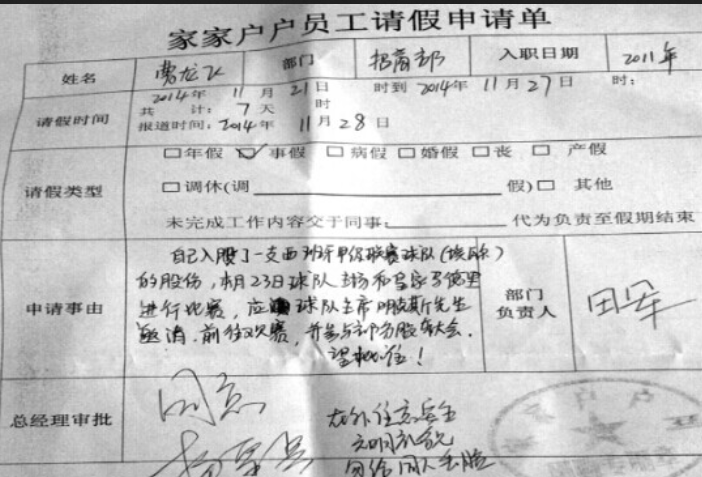 家家户户员工请假申请单
姓名 曹龙飞 部门 招商部 入职日期 2011年
请假时间
2014年 11月 21日 时到 2014年 11月27日 时:
共 计: 7 天 时
报道时间: 2014年 11月28日
请假类型
□年假 ☑事假 □病假 □婚假 □丧 □ 产假
□调休(调 假)□ 其他
未完成工作内容交于同事: 代为负责至假期结束
申请事由
自己入股了一支西班牙甲级联赛球队(埃瓦尔)
的股份,本月23日球队主场和皇家马德里
进行比赛,应 球队主席 先生
邀请.前往观赛,并参与 股东大会.
望批准!
部门
负责人
田军
总经理审批
同意
在外注意安全
文明礼貌
勿给国人丢脸
家家户户